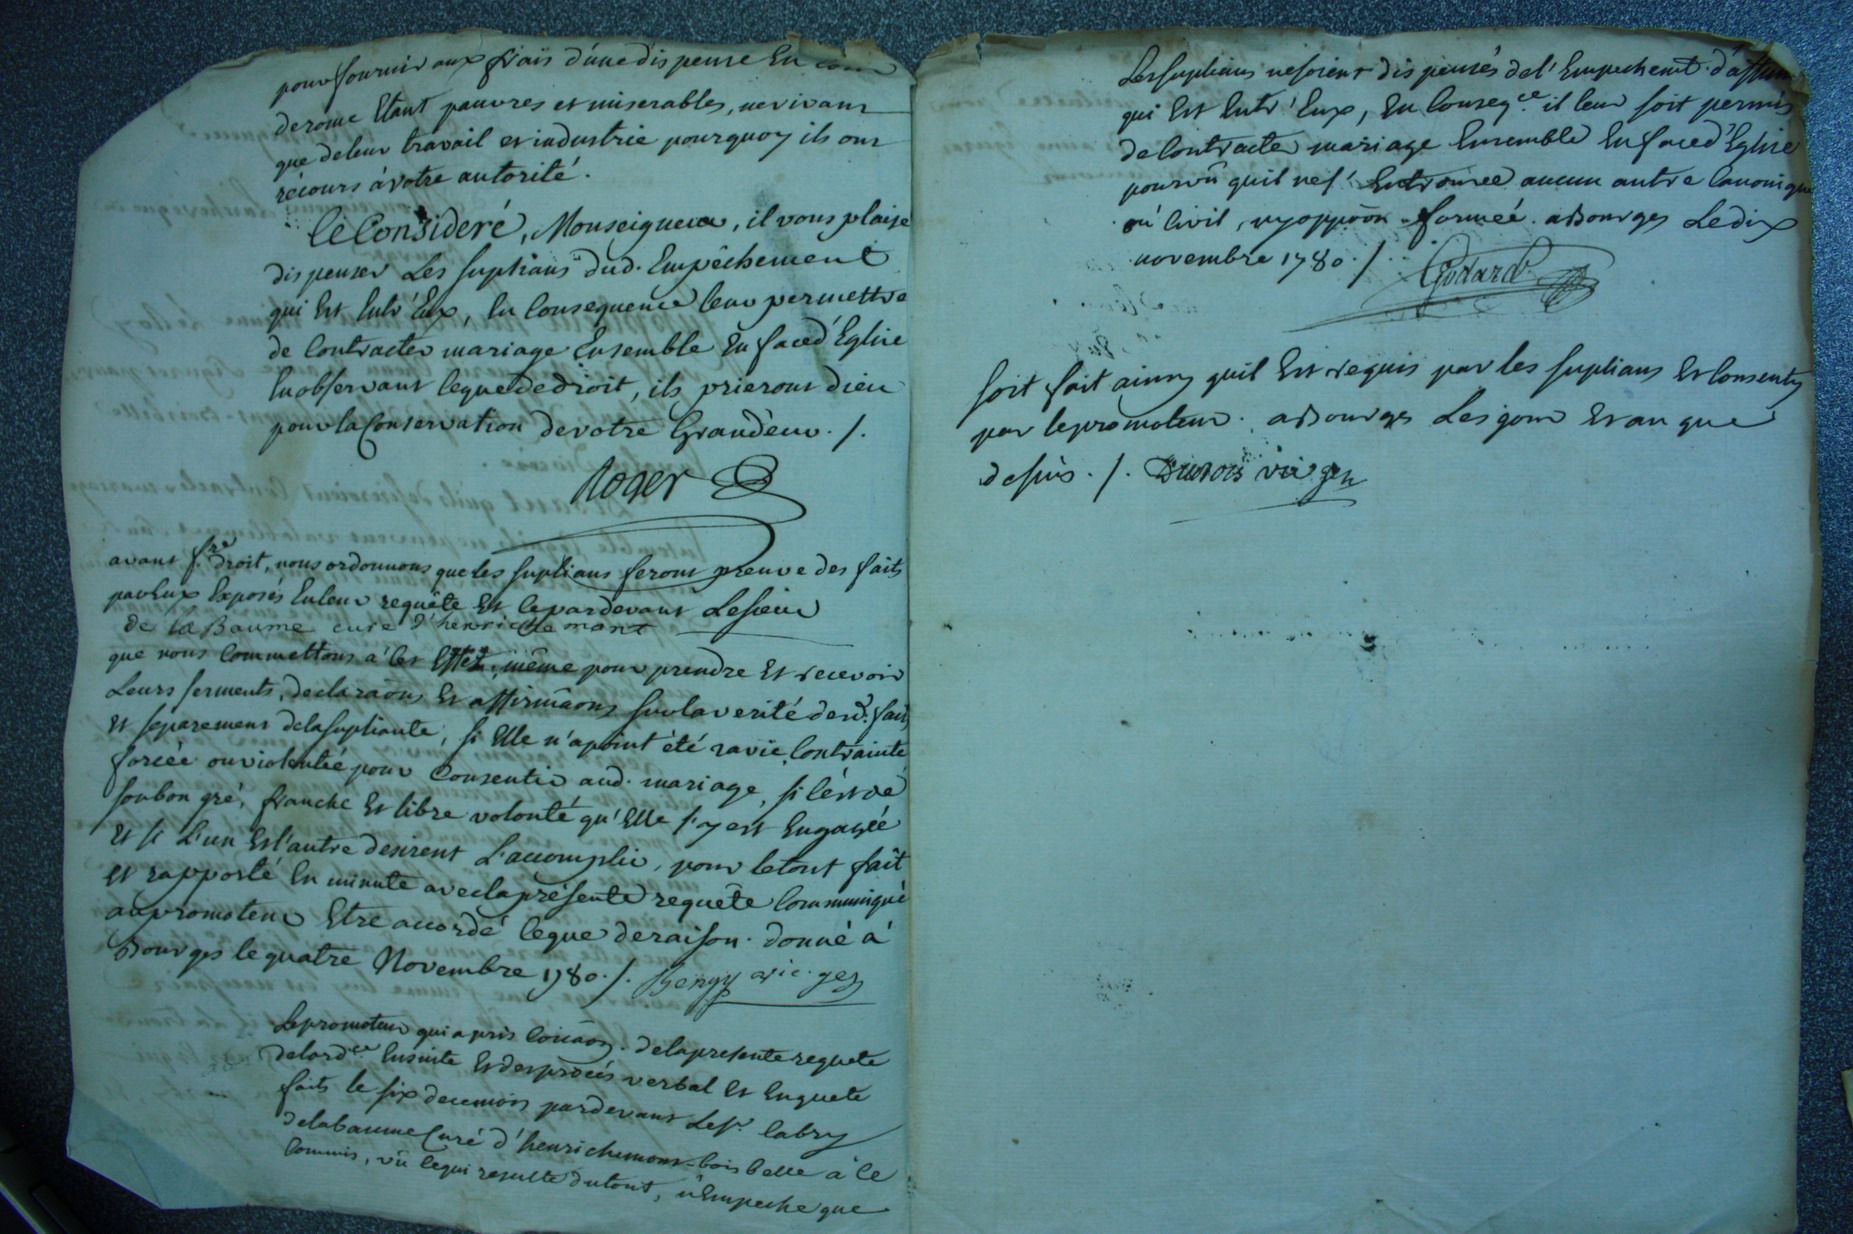 pour fournir aux frais d'une dispense En cour
de rome Etant pauvres et miserables, ne vivant
que de leur travail et industrie pourquoy ils ont
récours à votre autorité.
Ce Consideré, Monseigneur, il vous plaise
dispenser Les suplians dud. Empêchement
qui Est Entr'Eux, En Consequence leur permettre
de Contracter mariage Ensemble En face d'Eglise
En observant ce que de droit, ils prieront dieu
pour la Conservation de votre Grandeur ./.
Roger
avant fre droit, nous ordonnons que les suplians feront preuve des faits
par Eux Exposés En leur requête Et ce pardevant Le sieur
de la Baume curé d'henrichemont
que nous Commettons à cet Effet, même pour prendre Et recevoir
Leurs serments, declaraôns Et affirmâons sur la verité desd. faits
Et separement de la supliante, si Elle n'a point été ravie, Contrainte
forcée ou violentée pour Consentir aud. mariage, si c'est de
son bon gré, franche Et libre volonté qu'Elle s'y est Engagée
Et si L'un Et l'autre desirent L'accomplir, pour le tout fait
Et rapporté En minute avec la présente requête Communiqué
au promoteur Etre accordé ce que de raison. Donné à
Bourges le quatre Novembre 1780 ./. Bengy vic. gen
Le promoteur qui a pris Comâon. de la presente requete
de lordce Ensuite Et des procès verbal Et Enquete
faits le six de ce mois pardevant Le sr. Cabry
de la baume Curé d'henrichemont-boisbelle à ce
Commis, vû ce qui resulte du tout, n'Empeche que
Les suplians ne soient dispensés de l'Empechemt. d'affin
qui Est Entr'Eux, En Conseqce. il leur soit permis
de Contracter mariage Ensemble En face d'Eglise
pourvû qu'il ne s'En trouve aucun autre Canonique
où Civil, ny oppôon formée. a Bourges Le dix
novembre 1780 ./. Godard
soit fait ainsy quil Est requis par les suplians Et Consenty
par le promoteur. a Bourges Les jour Et an que
dessus ./. Dubois vic gen